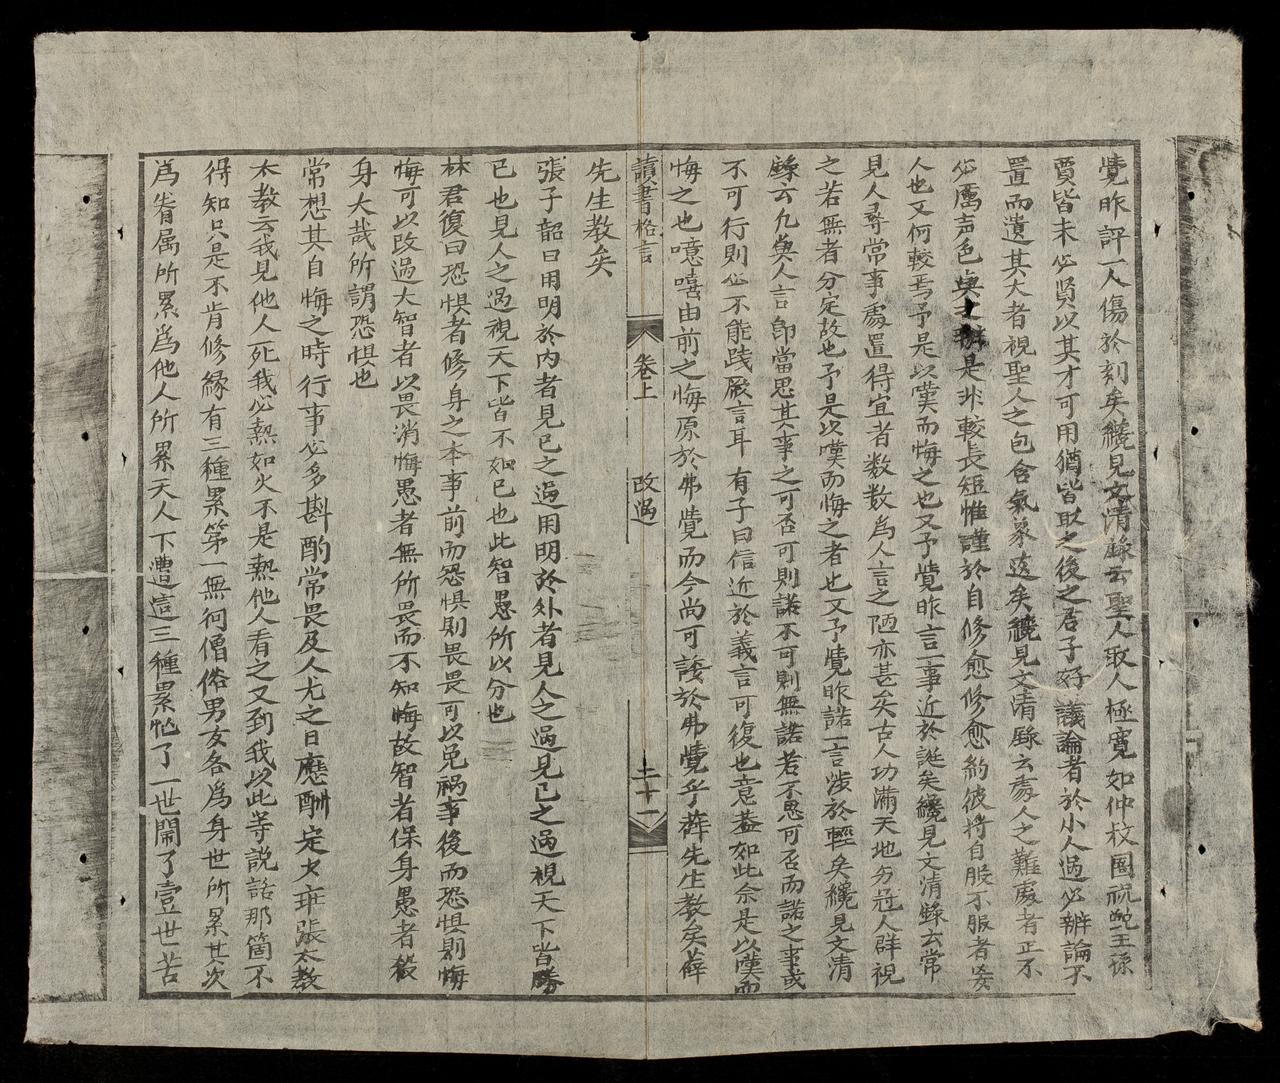 覺昨評一人傷於刻矣纔見文清錄云聖人取人極寬如仲杈圉祝鮀王孫
賈皆未必賢以其才可用猶皆取之後之君子好議論者於小人過必辨論不
置而遺其大者視聖人之包含氣象迻矣纔見文清錄云處人之難處者正不
必厲声色與之辯是非較長短惟謹於自修愈修愈約彼将自服不服者妄
人也又何較焉予是以嘆而悔之也又予覺昨言一事近於誕矣纔見文清錄云常
見人尋常事處置得宜者数数為人言之陋亦甚矣古人功滿天地㔟冠人群視
之若無者分定故也予是以嘆而悔之者也又予覺昨諾一言涉於輕矣纔見文清
錄云凢與人言卽當思其事之可否可則諾不可則無諾若不思可否而諾之事或
不可行則必不能践厥言耳有子曰信近於義言可復也意葢如此余是以嘆而
悔之也噫嘻由前之悔原於弗覺而今尚可諉於弗覺乎薛先生教矣薛
讀書格言 卷上 改過 二十一
先生教矣
張子韶曰用明於內者見已之過用明於外者見人之過見已之過視天下皆勝
已也見人之過視天下皆不如已也此智愚所以分也
林君復曰恐惧者修身之本事前而恐惧則畏畏可以免禍事後而恐惧則悔
悔可以改過大智者以畏消悔愚者無所畏而不知悔故智者保身愚者殺
身大哉所謂恐惧也
常想其自悔之時行事必多斟酌常畏及人尤之日應酬定少班張太教
太教云我見他人死我必熱如火不是熱他人看之又到我以此等説話那箇不
得知只是不肯修縁有三種累第一無何僧俗男女各為身世所累其次
為眷属所累為他人所累天人下遭這三種累忙了一世閙了壹世苦